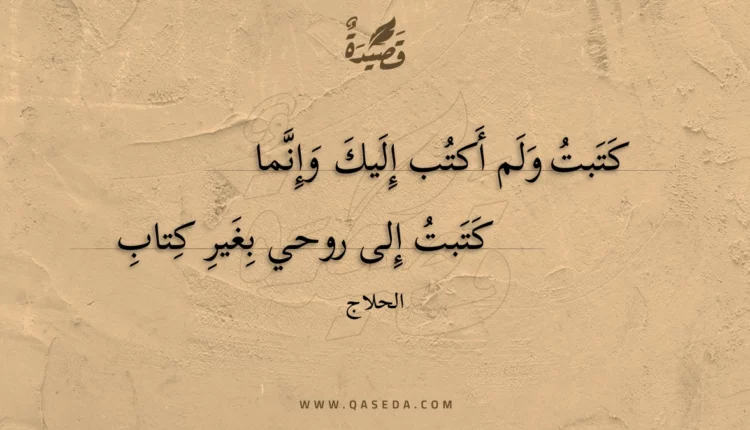 قَصِيدَةٌ
كَتَبتُ وَلَم أَكتُب إِلَيكَ وَإِنَّما
كَتَبتُ إِلى روحي بِغَيرِ كِتابِ
الحلاج
WWW.QASEDA.COM